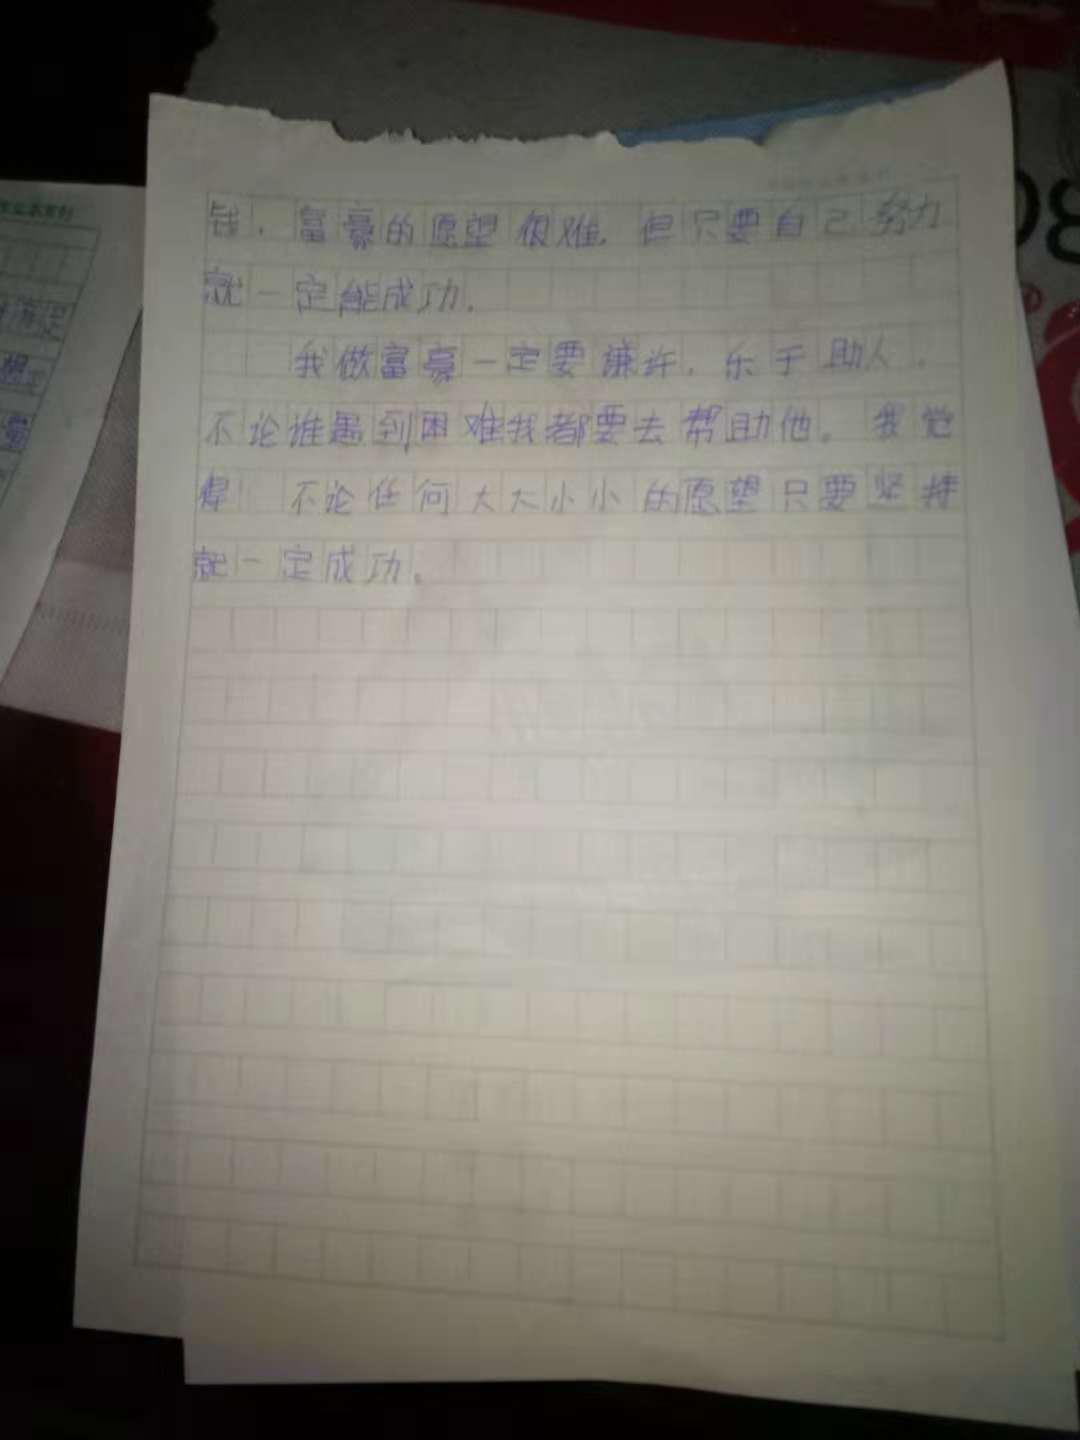 钱，富豪的愿望很难，但只要自己努力
就一定能成功。
我做富豪一定要谦许，乐于助人，
不论谁遇到困难我都要去帮助他。我觉
得不论任何大大小小的愿望只要坚持
就一定成功。